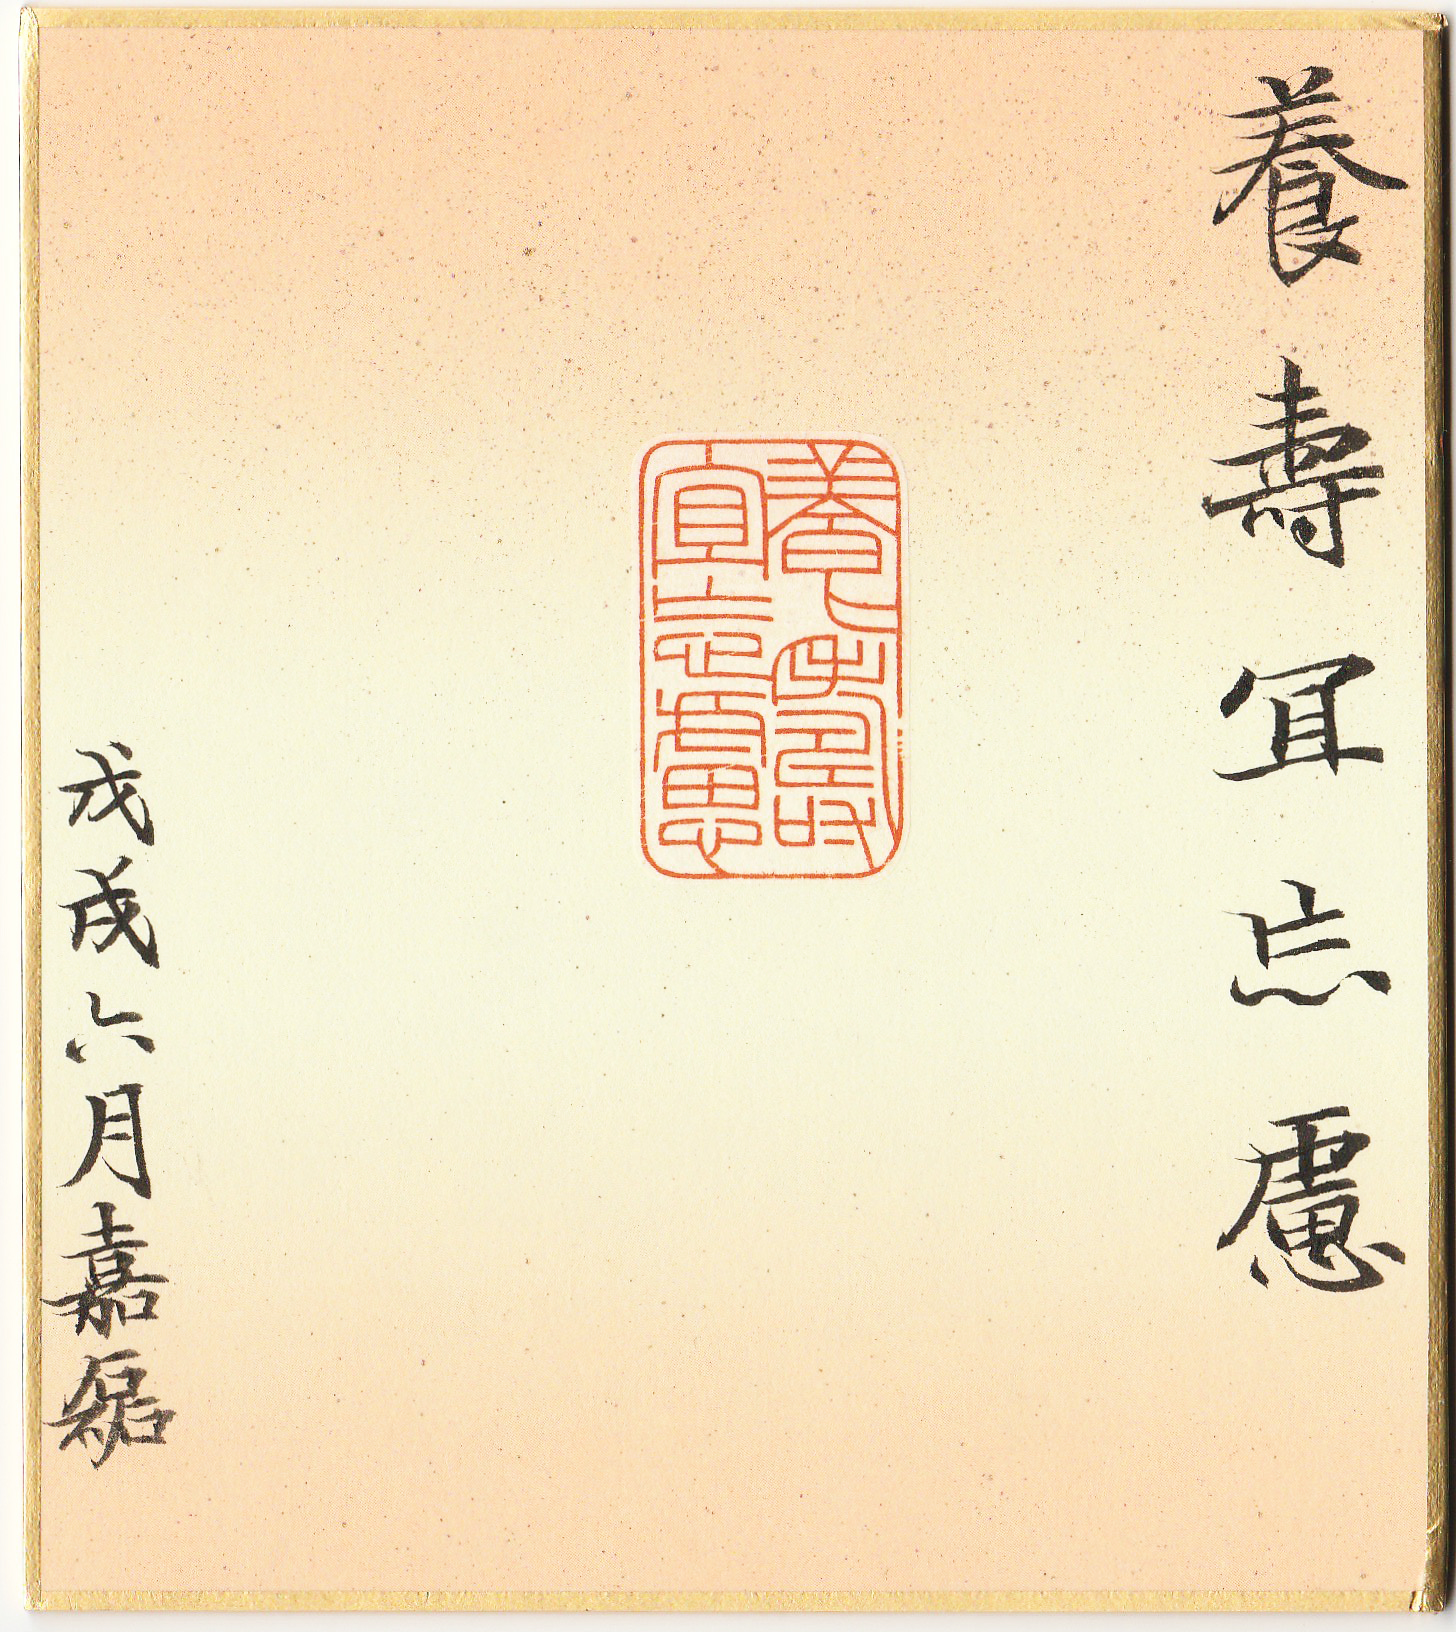 養壽冝忘慮
養壽
宜忘慮
戊戌六月嘉磊